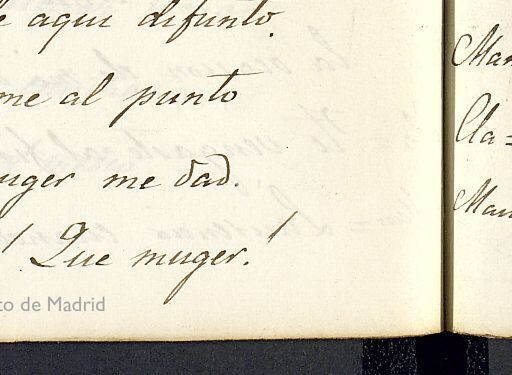 aqui difunto.
me al punto
uger me dad.
! Que muger!
to de Madrid
Man
Cla=
Man